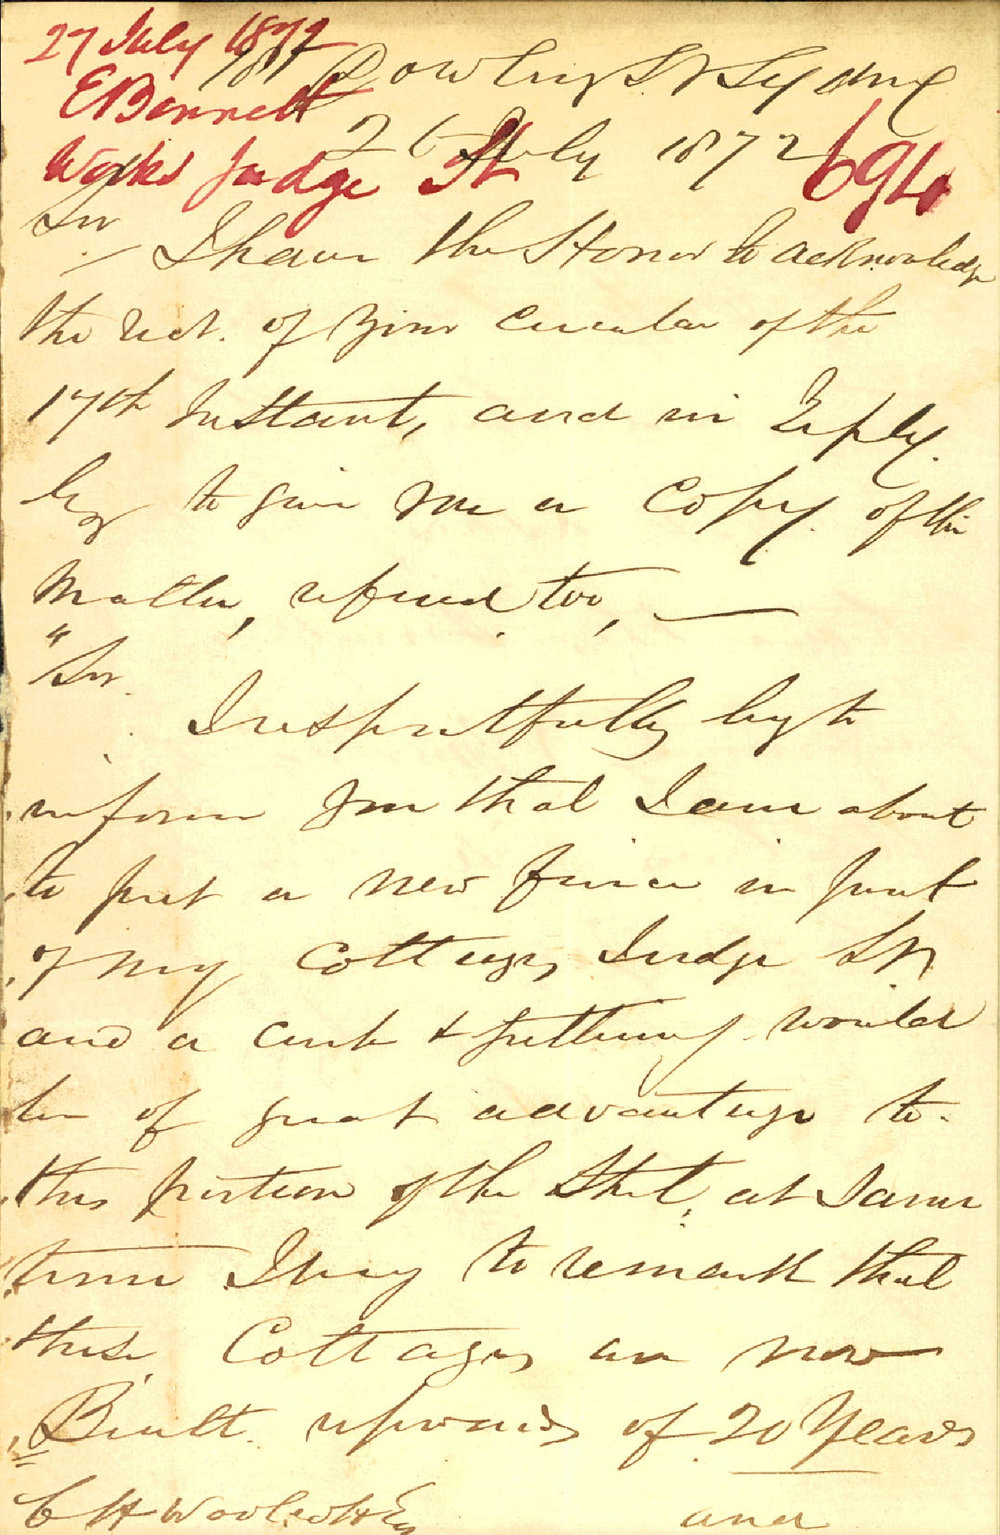 27 July 1872
E Bennett
Works Judge St
694
Dowling St Sydney
26 July 1872
Sir
I have the Honor to acknowledge
the rect. of your Circular of the
17th Instant, and in Reply.
beg to give you a Copy. of the
Matter, refered too, —
"Sir.
I respectfully beg to
inform you that I am about
to put a new fence in front
of my Cottages, Judge St
and a curb & guttering would
be of great advantage to.
this portion of the Street, at same
time I beg to remark that
these Cottages are now
Built. upwards of 20 Years
C H Woolcott Esq
and